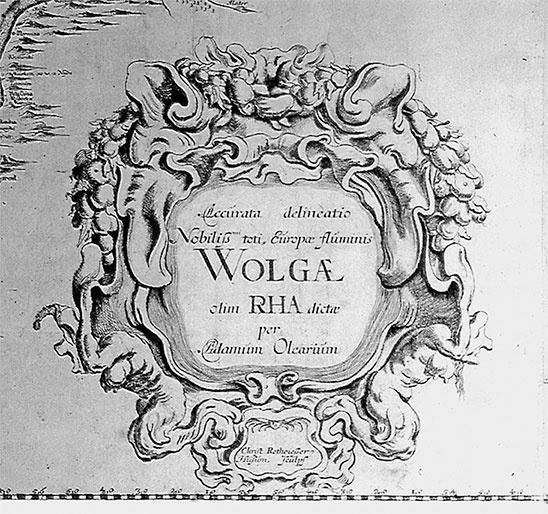 Accurata delineatio
Nobiliss toti, Europæ fluminis
WOLGÆ
olim RHA dictæ
per
Adamum Olearium
Christ Rothgiesser
Husum sculps